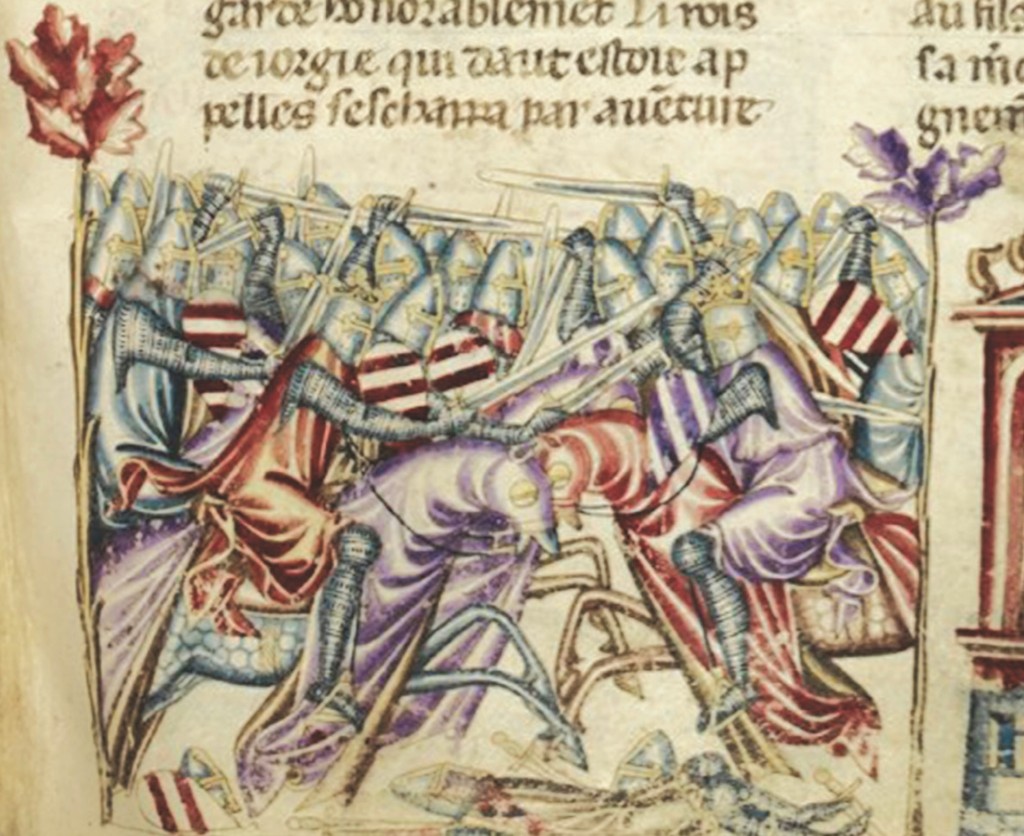 garde honorablemēt Li rois
de iorgie qui dauit estoit ap
pelles seschappa par auēture
au fils
sa